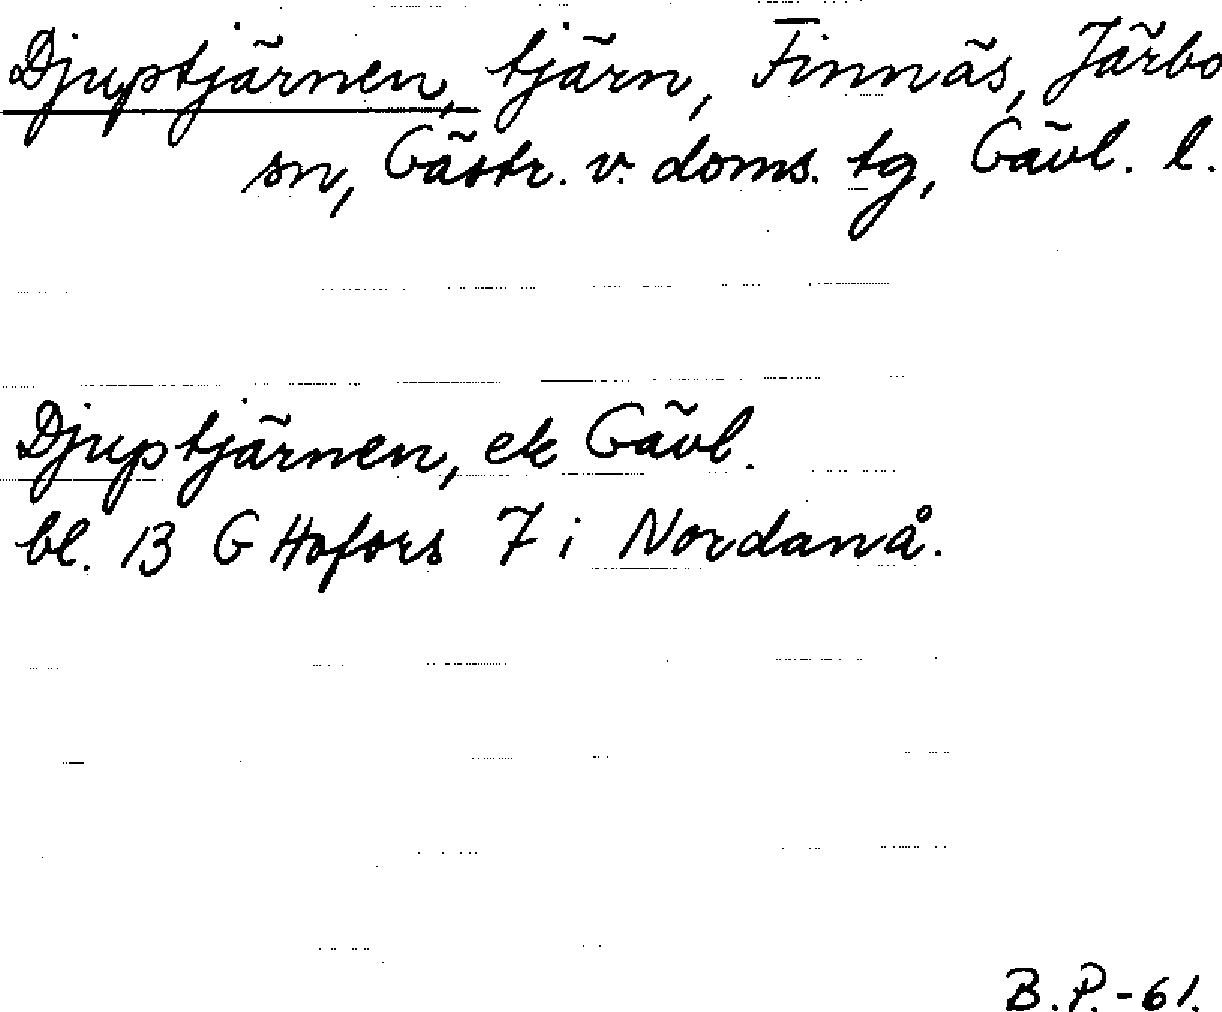 Djuptjärnen, tjärn, Finnäs, Järbo
sn, Gästr. v. doms. tg, Gävl. l.
Djuptjärnen, ek Gävl.
bl. 13 G Hofors 7 i Nordanå.
B.P.-61.